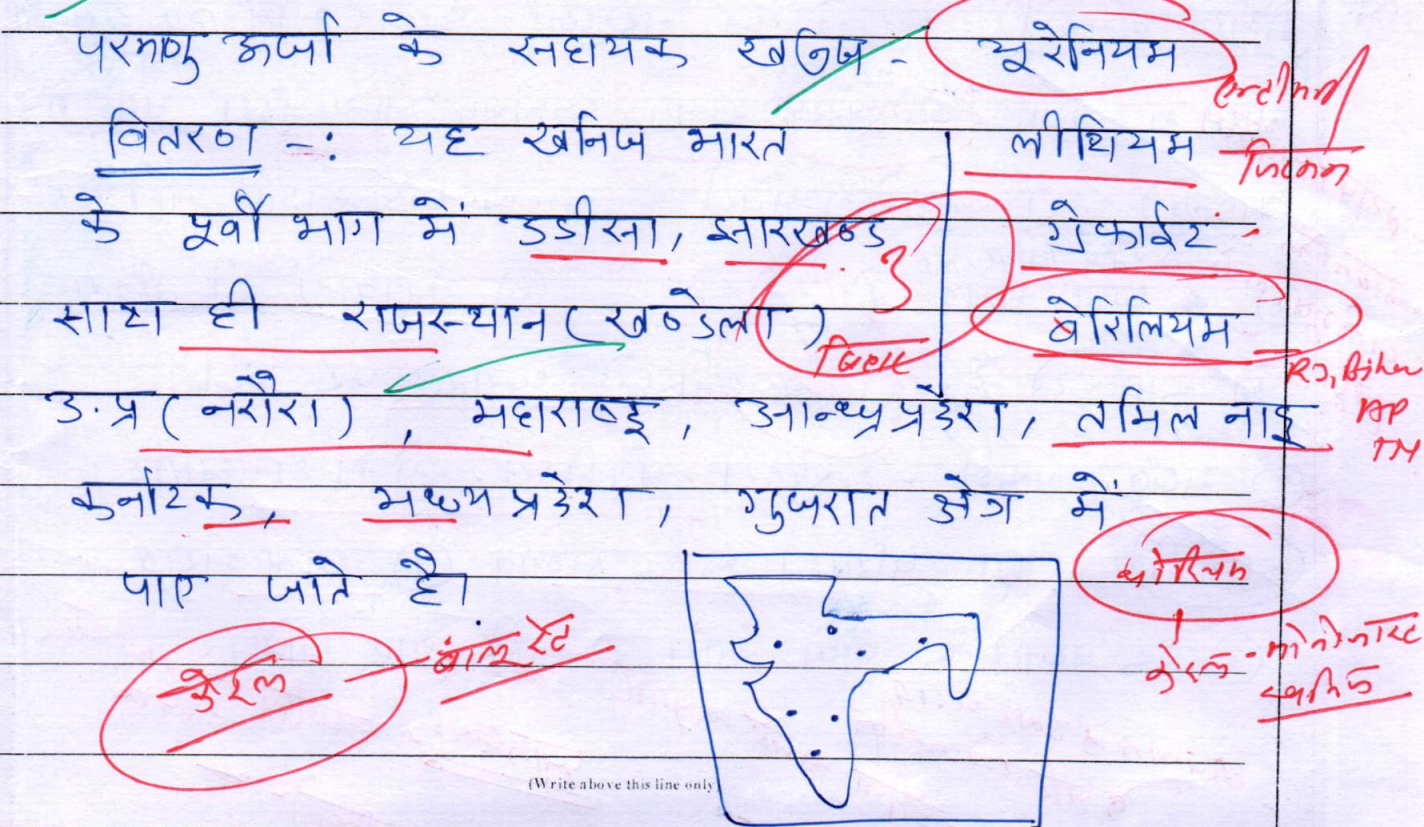 परमाणु ऊर्जा के सहायक खनिज - यूरेनियम
वितरण -: यह खनिज भारत
के पूर्वी भाग में उडीसा, झारखण्ड
साथ ही राजस्थान (खण्डेला)
उ.प्र (नरौरा), महाराष्ट्र, आन्ध्रप्रदेश, तमिल नाडु
कर्नाटक, मध्यप्रदेश, गुजरात क्षेत्र में
पाए जाते है।
लीथियम
ग्रेफाईट
बेरिलियम
3
RJ, Bihar
AP
TN
थोरियम
केरल - मोनोजाइट
केरल
(Write above this line only